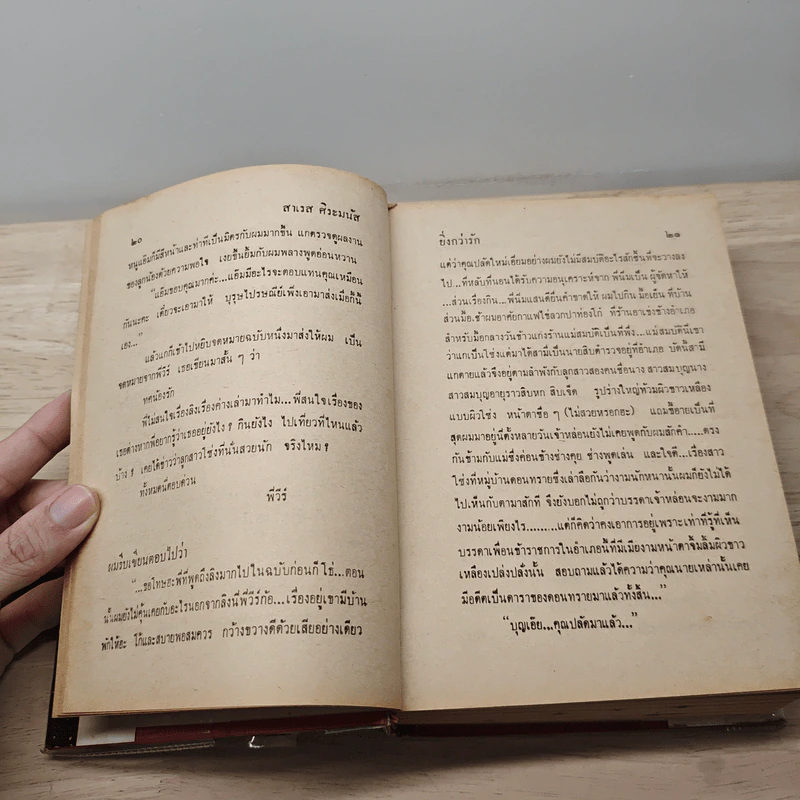 ๒๐
สาเรส ศิระมนัส
หนูแอ๊มก็มีสีหน้าและท่าทีเป็นมิตรกับผมมากขึ้น แกตรวจดูผลงาน
ของลูกน้องด้วยความพอใจ เงยขึ้นยิ้มกับผมพลางพูดอ่อนหวาน
"แอ๊มขอบคุณมากค่ะ...แอ๊มมีอะไรจะตอบแทนคุณเหมือน
กันนะคะ เดี๋ยวจะเอามาให้ บุรุษไปรษณีย์เพิ่งเอามาส่งเมื่อกี้นี้
เอง..."
แล้วแกก็เข้าไปหยิบจดหมายฉบับหนึ่งมาส่งให้ผม เป็น
จดหมายจากพี่วีร์ เธอเขียนมาสั้น ๆ ว่า
ทศน้องรัก
พี่ไม่สนใจเรื่องลิงเรื่องค่างเล่ามาทำไม...พี่สนใจเรื่องของ
เธอต่างหากพี่อยากรู้ว่าเธออยู่ยังไง ? กินยังไง ไปเที่ยวที่ไหนแล้ว
บ้าง ? เคยได้ข่าวว่าลูกสาวโซ่งที่นั่นสวยนัก จริงไหม ?
ทั้งหมดนี่ตอบด่วน
พี่วีร์
ผมรีบเขียนตอบไปว่า
"...ขอโทษฮะพี่ที่พูดถึงลิงมากไปในฉบับก่อนก็ โธ่...ตอน
น้ำผมยังไม่คุ้นเคยกับอะไรนอกจากลิงนี่พี่วีร์ก้อ...เรื่องอยู่เขามีบ้าน
พักให้ฮะ โก้และสบายพอสมควร กว้างขวางดีด้วยเสียอย่างเดียว
ยิ่งกว่ารัก
๒๑
แต่ว่าคุณปลัดใหม่เอี่ยมอย่างผมยังไม่มีสมบัติอะไรสักชิ้นที่จะวางลง
ไป...ที่หลับที่นอนได้รับความอนุเคราะห์จาก พี่นิ่มเป็น ผู้จัดหาให้
...ส่วนเรื่องกิน...พี่นิ่มแสนดียื่นคำขาดให้ ผมไปกิน มื้อเย็น ที่บ้าน
ส่วนมื้อเช้าผมอาศัยกาแฟใช่ลวกปาท่องโก๋ ที่ร้านอาเฮงข้างอำเภอ
สำหรับมื้อกลางวันข้าวแกงร้านแม่สมบัติเป็นที่พึ่ง...แม่สมบัตินี่เขา
ว่าแกเป็นโซ่งแต่มาได้สามีเป็นนายสิบตำรวจอยู่ที่อำเภอ บัดนี้สามี
แกตายแล้วจึงอยู่ตามลำพังกับลูกสาวสองคนชื่อนาง สาวสมบุญนาง
สาวสมบุญอายุราวสิบหก สิบเจ็ด รูปร่างใหญ่ท้วมผิวขาวเหลือง
แบบผิวโซ่ง หน้าตาซื่อ ๆ (ไม่สวยหรอกฮะ) แถมขี้อายเป็นที่
สุดผมมาอยู่นี่ตั้งหลายวันเจ้าหล่อนยังไม่เคยพูดกับผมสักคำ....ตรง
กันข้ามกับแม่ซึ่งค่อนข้างช่างคุย ช่างพูดเล่น และใจดี...เรื่องสาว
โซ่งที่หมู่บ้านดอนทรายซึ่งเล่าลือกันว่างามนักหนานั้นผมก็ยังไม่ได้
ไปเห็นกับตามาสักที จึงยังบอกไม่ถูกว่าบรรดาเจ้าหล่อนจะงามมาก
งามน้อยเพียงไร.........แต่ก็คิดว่าคงเอาการอยู่เพราะเท่าที่รู้ที่เห็น
บรรดาเพื่อนข้าราชการในอำเภอนี้ที่มีเมียงามหน้าตาจิ้มลิ้มผิวขาว
เหลืองเปล่งปลั่งนั้น สอบถามแล้วได้ความว่าคุณนายเหล่านั้นเคย
มีอดีตเป็นดาราของดอนทรายมาแล้วทั้งสิ้น..."
"บุญเอ๊ย...คุณปลัดมาแล้ว..."